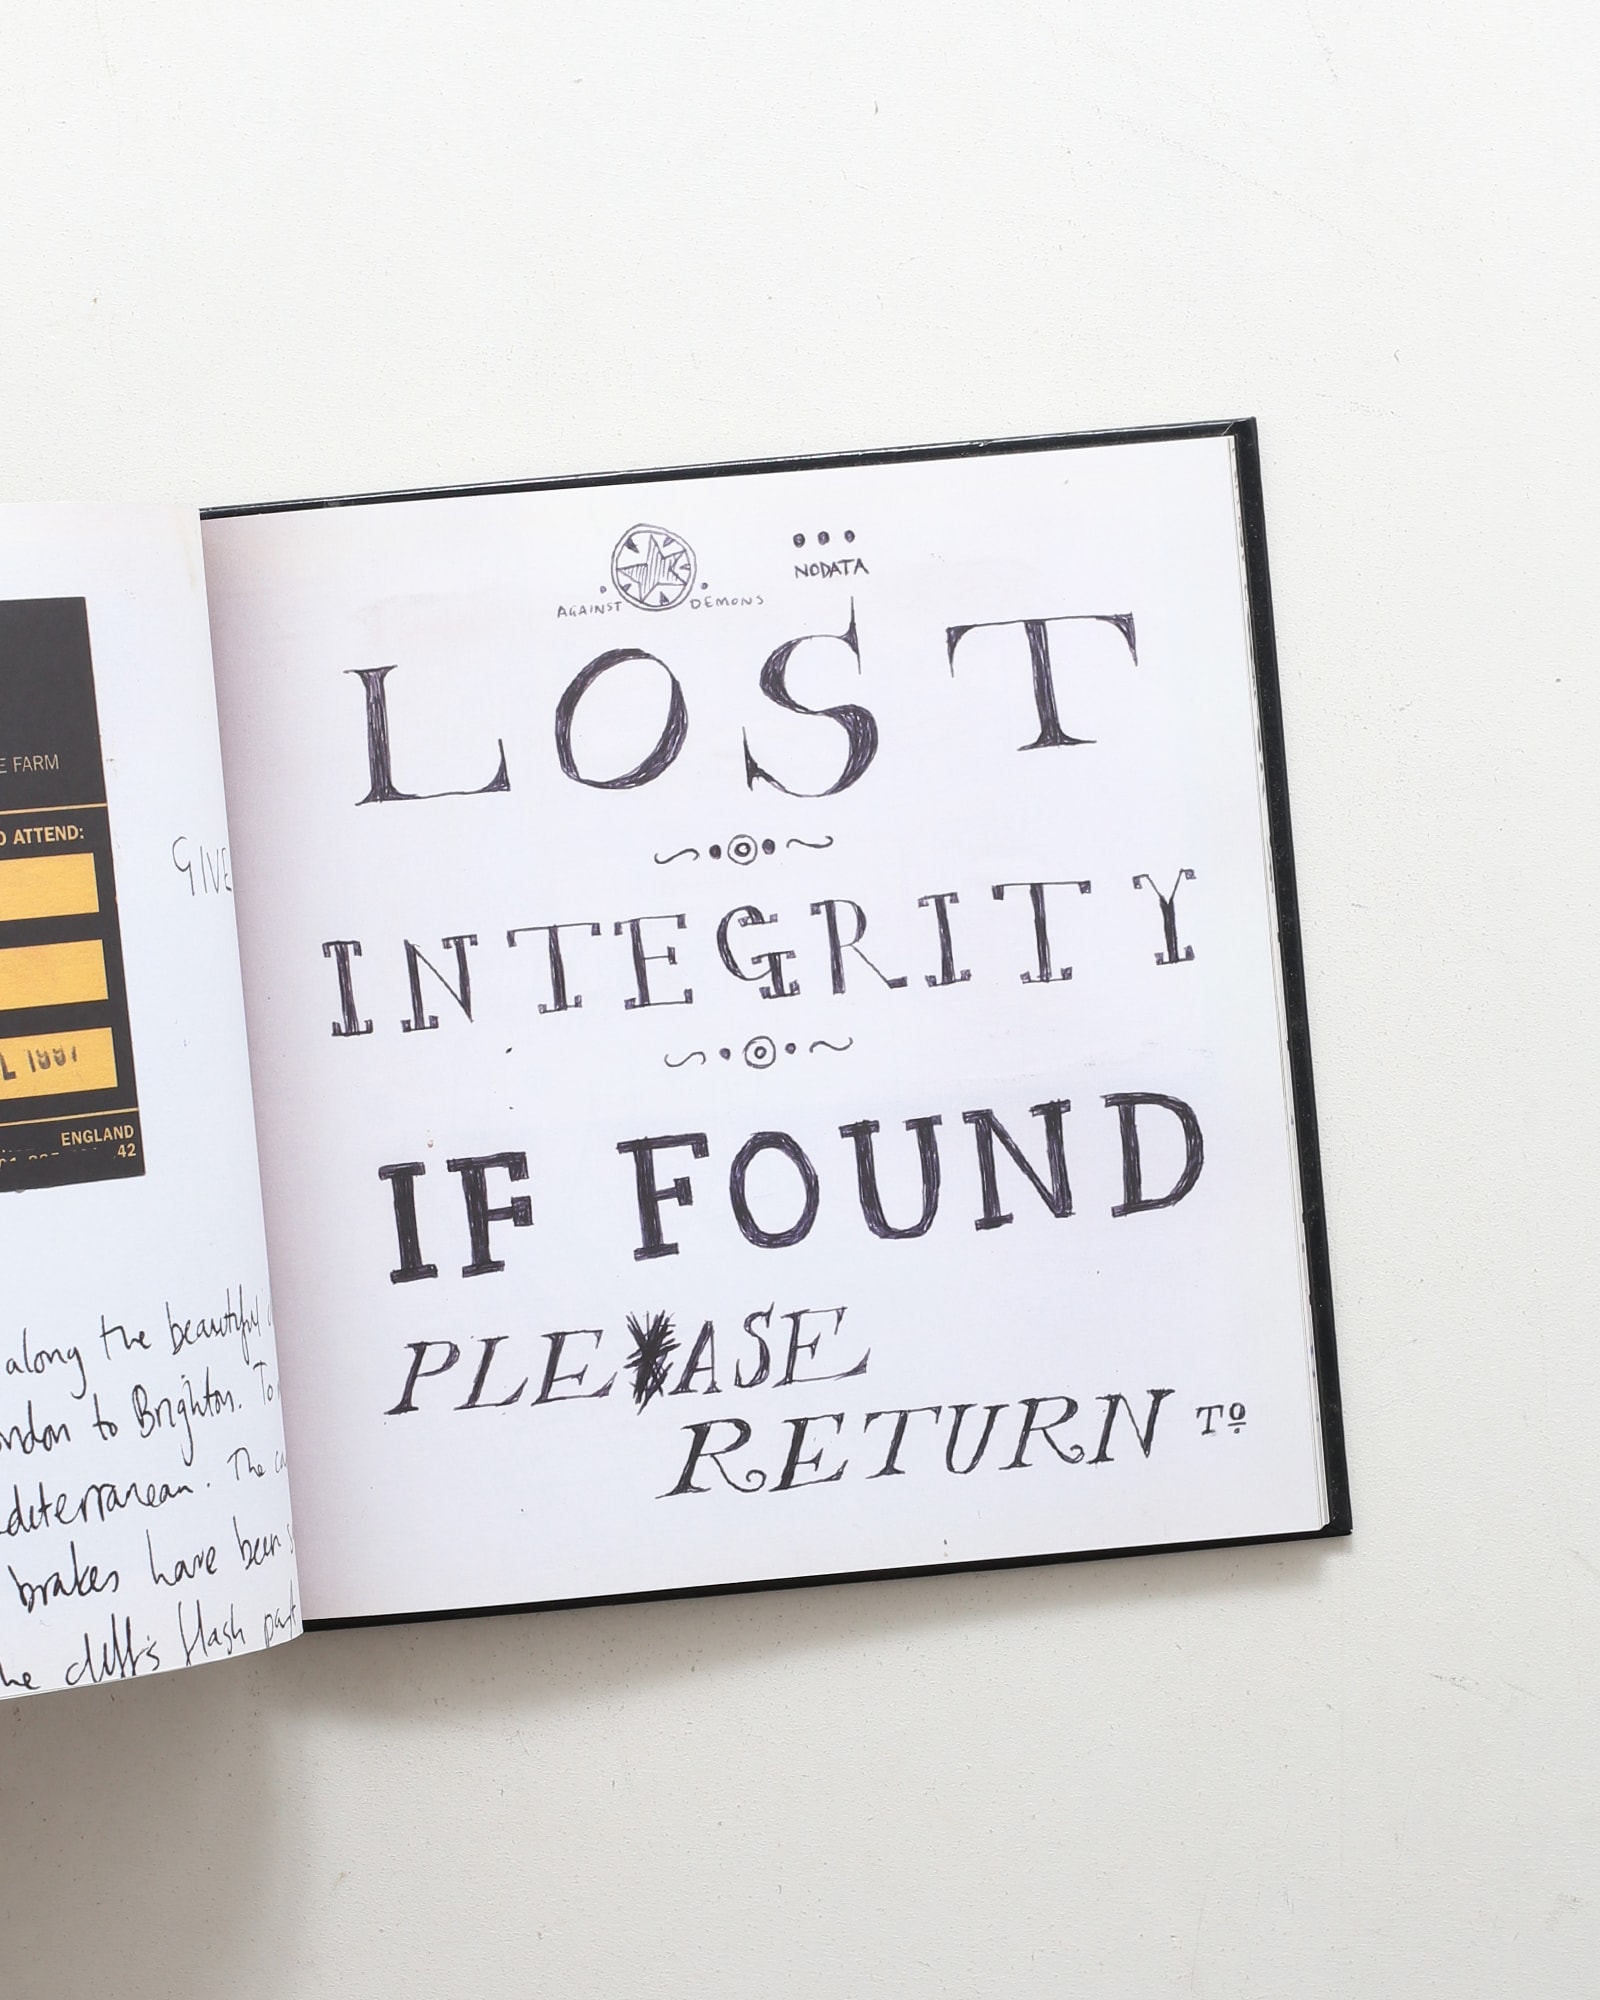 E FARM
O ATTEND:
L 1997
ENGLAND
42
GIVE
along the beautiful
ondon to Brighton. To
diterranean. The
brakes have been
he cliff's flash
AGAINST DEMONS
NODATA
LOST
INTEGRITY
IF FOUND
PLEASE
RETURN TO